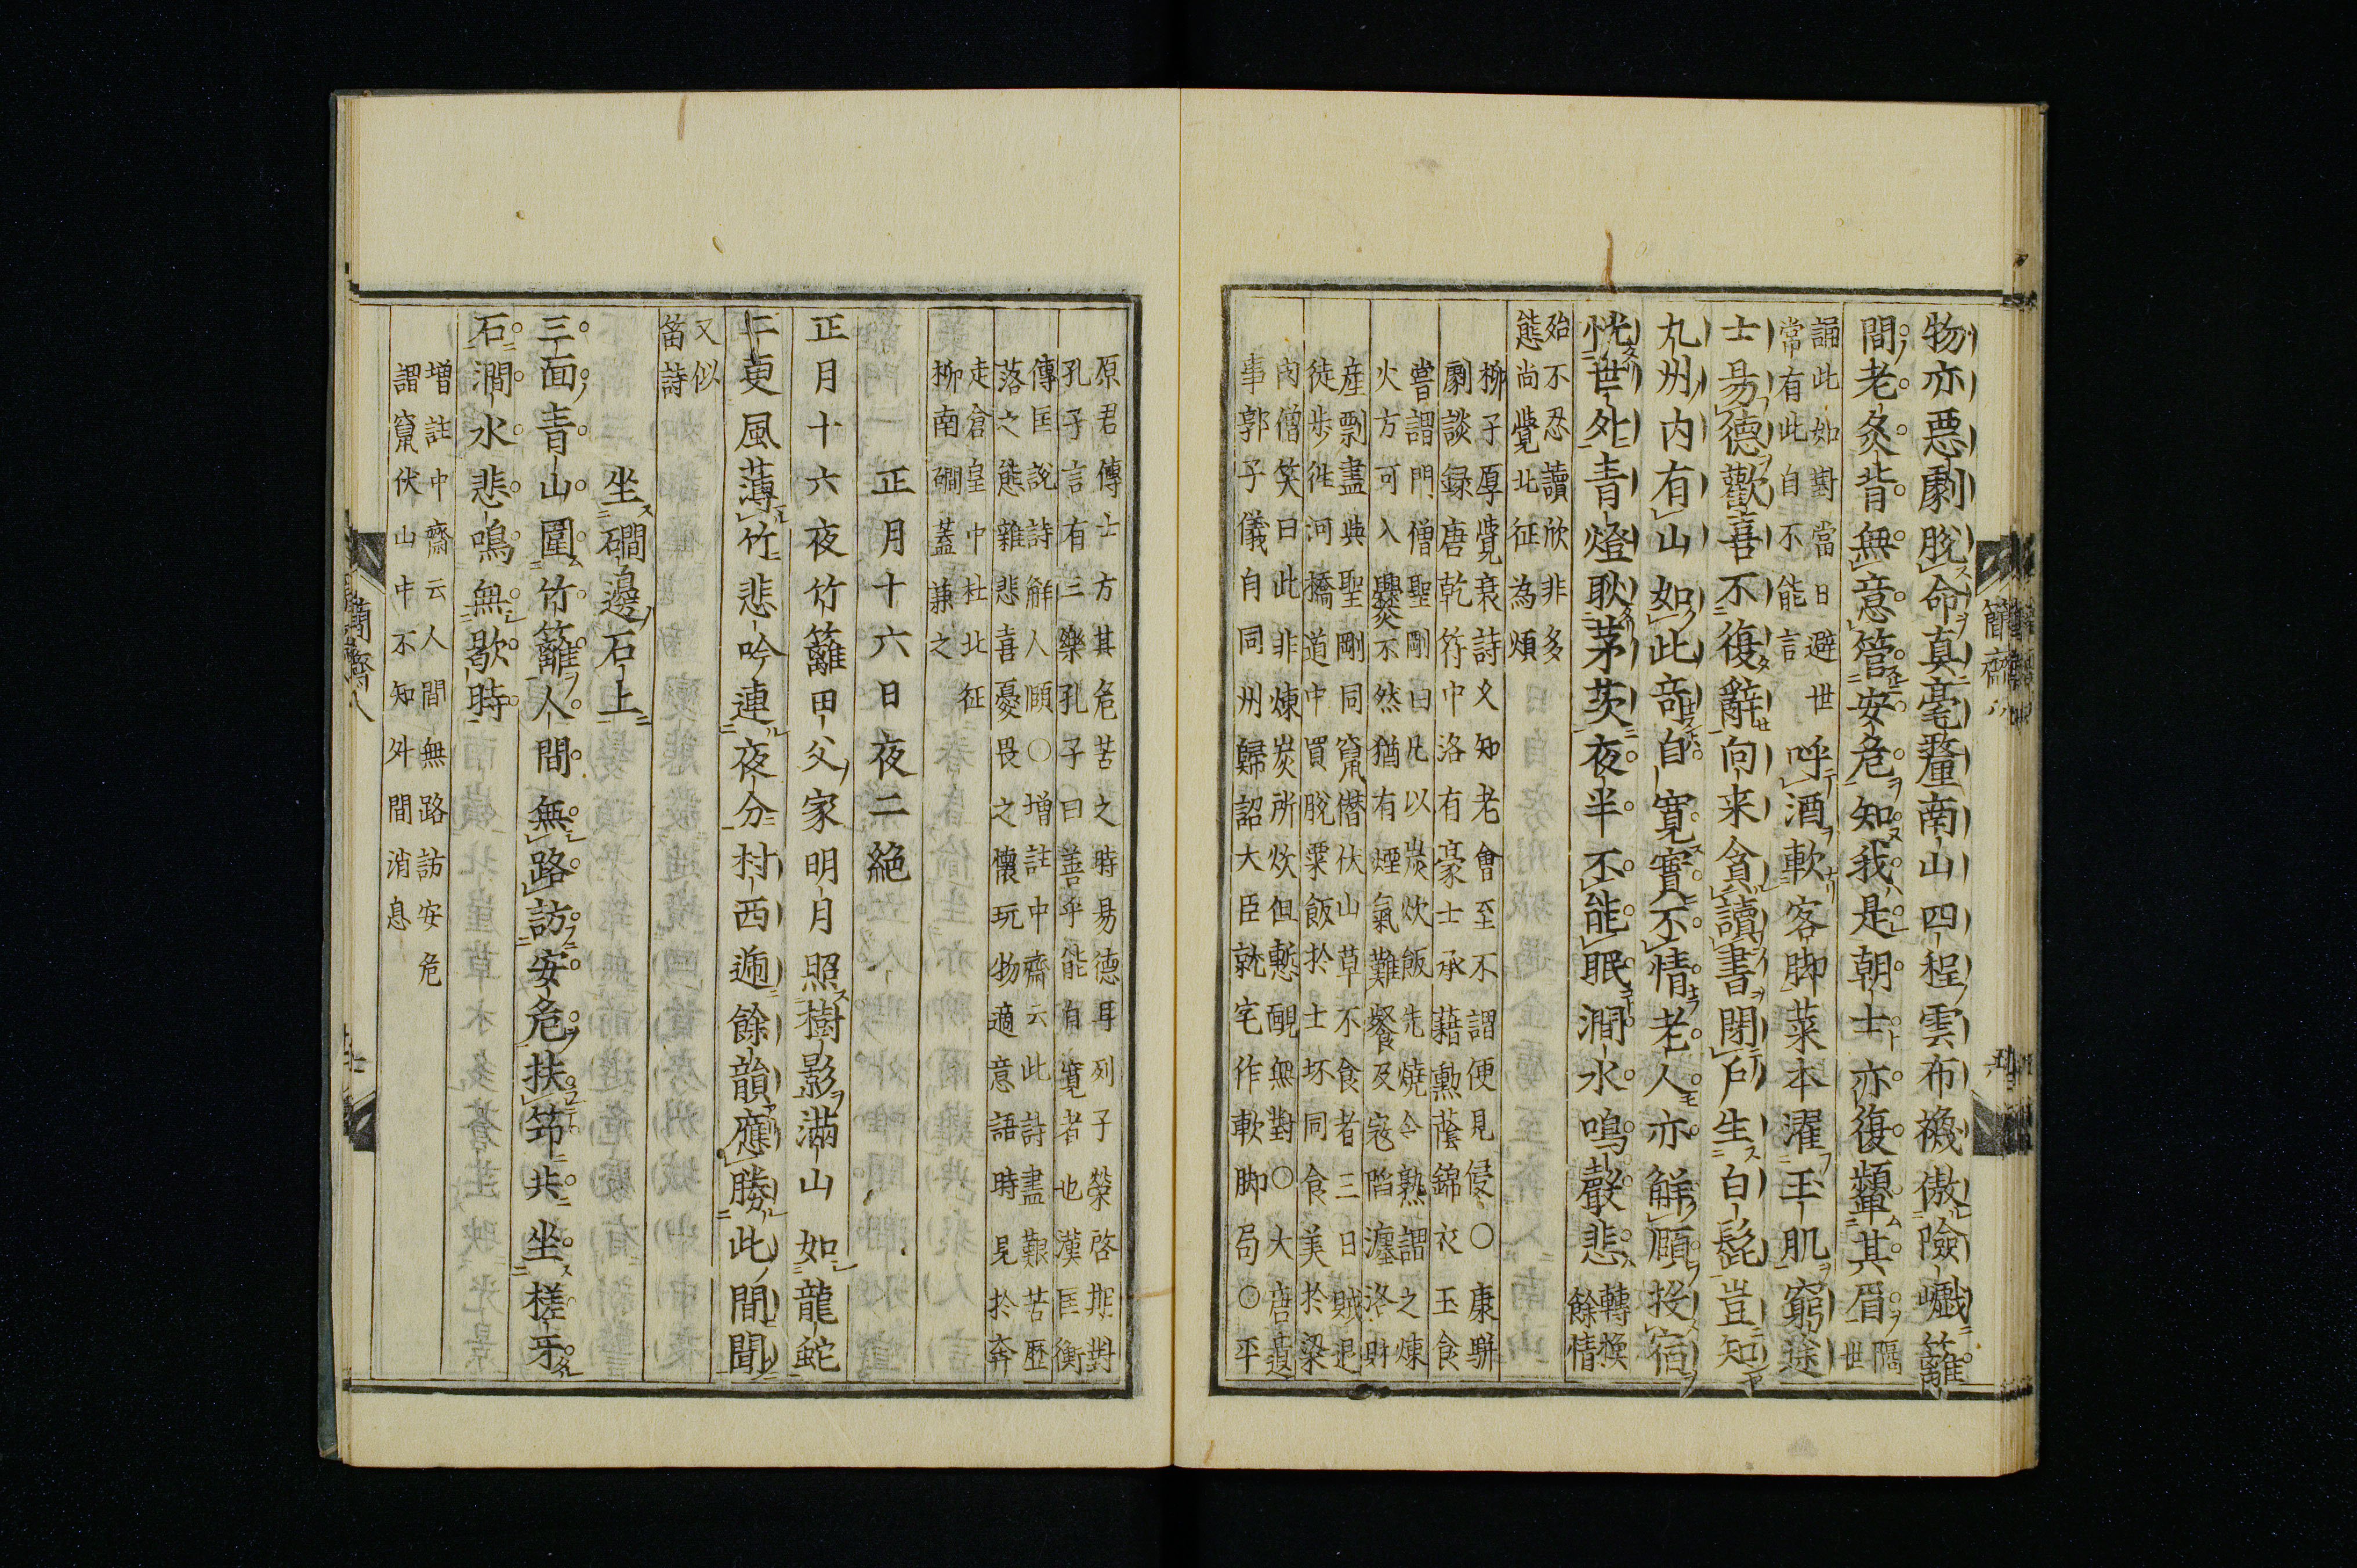 物亦惡劇脫命真毫釐南山四程雲布襪傲險巇籬
間老灸背無意管安危知我是朝士亦復顰其眉
隔
世
誦此如對當日避世
常有此自不能言
呼酒軟客脚菜本濯玉肌窮途
士易德歡喜不復辭向来貪讀書閉戶生白髭豈知
九州内有山如此奇自寬實不情老人亦解頤投宿
恍世外青燈耿茅茨夜半不能眠澗水鳴聲悲
轉換
餘情
殆不忍讀欣非多
態尚覺北征為煩
柳子厚覺衰詩久知老會至不謂便見侵○康駢
劇談録唐乾符中洛有豪士承藉勳蔭錦衣玉食
嘗謂門僧聖剛曰凡以炭炊飯先燒令熟謂之煉
火方可入爨不然猶有煙氣難餐及寇陷瀍洛財
産剽盡與聖剛同竄僭伏山草不食者三日賊退
徒歩徃河橋道中買脫粟飯於士坏同食美於粱
肉僧笑曰此非煉炭所炊但慙靦無對○大唐遺
事郭子儀自同州歸詔大臣就宅作軟脚局○平
原君傳士方其危苦之時易德耳列子榮啓期對
孔子言有三樂孔子曰善乎能自寬者也漢匡衡
傳匡說詩解人頤○増註中齋云此詩盡艱苦歷
落之態雜悲喜憂畏之懐玩物適意語時見於奔
走倉皇中杜北征
柳南磵蓋兼之
正月十六日夜二絶
正月十六夜竹籬田父家明月照樹影滿山如龍蛇
二更風薄竹悲吟連夜分村西遞餘韻應勝此間聞
又似
笛詩
坐磵邊石上
三面青山圍竹籬人間無路訪安危扶筇共坐槎牙
石澗水悲鳴無歇時
増註中齋云人間無路訪安危
謂竄伏山中不知外間消息
簡齋八